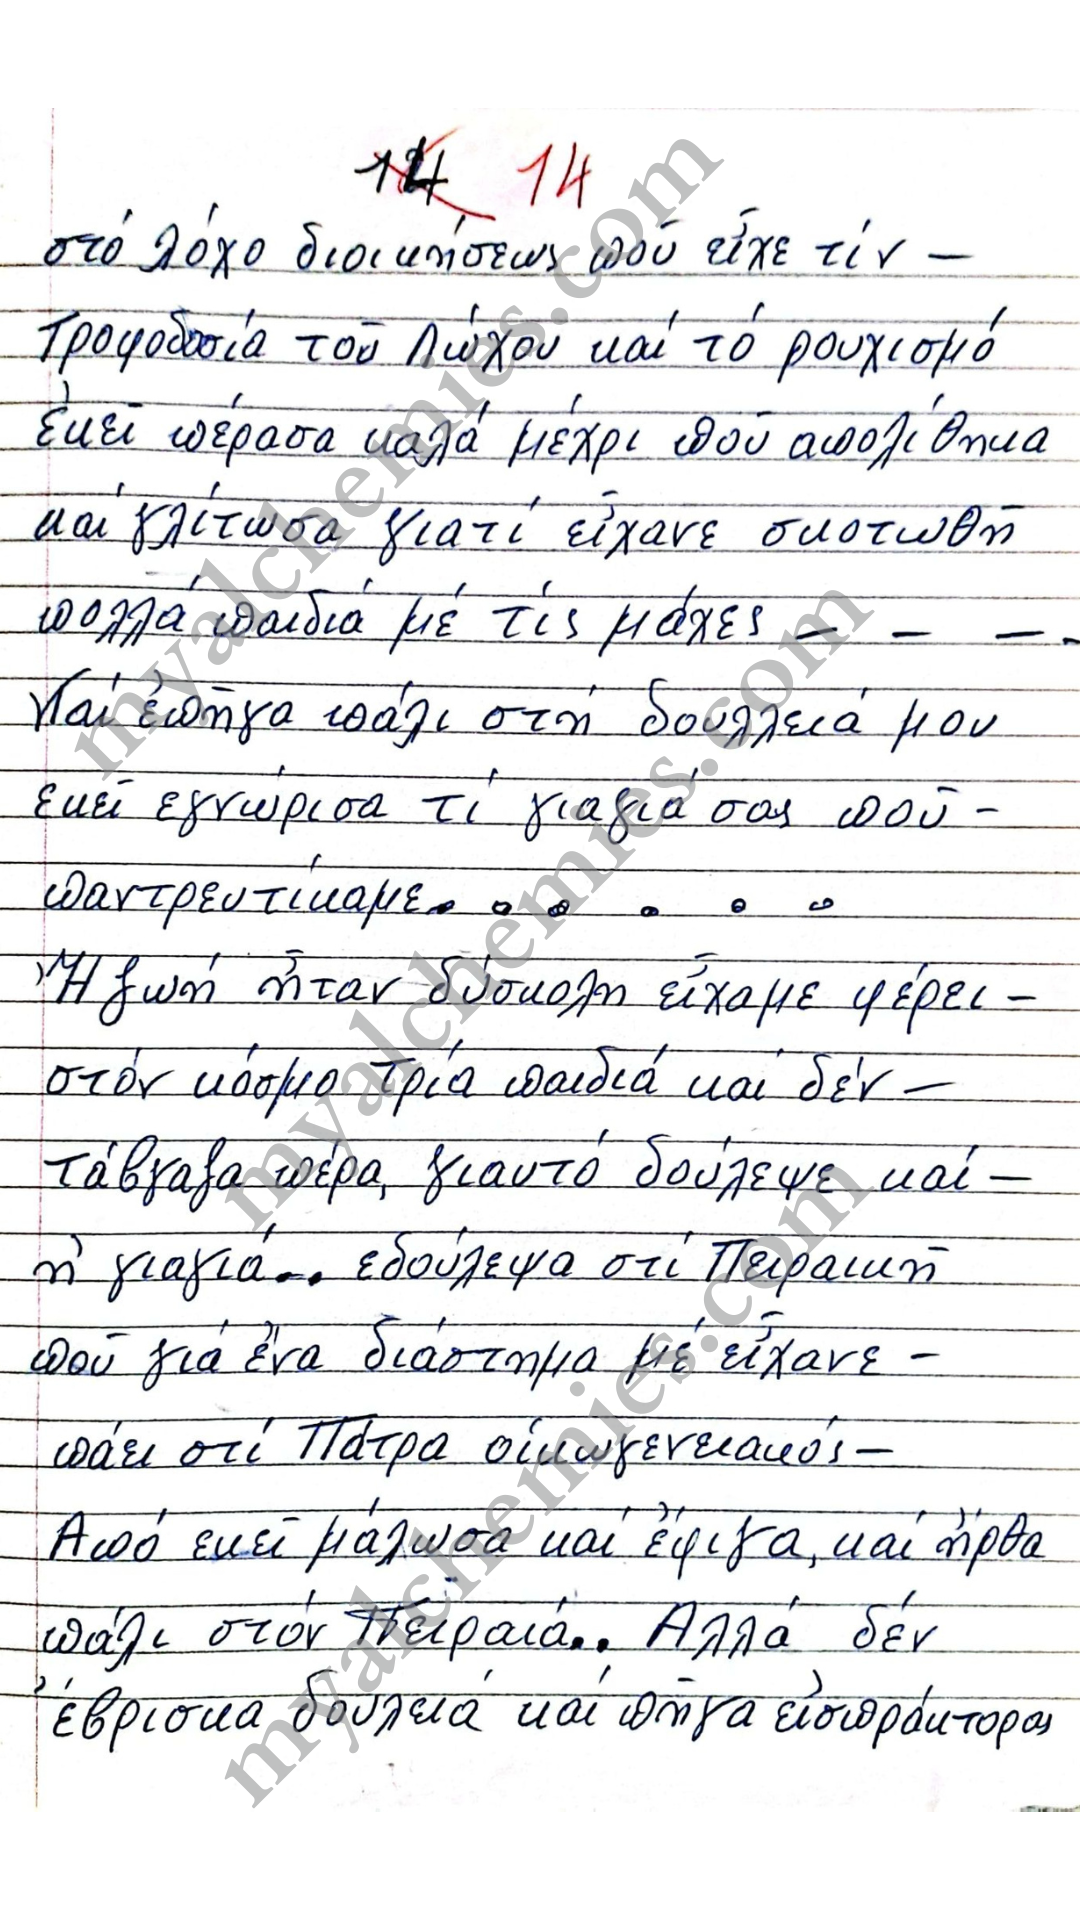 14 14
στό λόχο διοικήσεως πού εἶχε τίν –
Τροφοδοσία τοῦ Λώχου καί τό ρουχισμό
ἐκεῖ πέρασα καλά μέχρι πού απολίθηκα
καί γλίτωσα γιατί εἶχανε σκοτωθῆ
πολλά παιδιά μέ τίς μάχες – – –.
Καί ἐπῆγα πάλι στή δουλλειά μου
εκεῖ εγνώρισα τί γιαγιά σας ποῦ –
παντρευτίκαμε. . . . . .
Ἡ ζωή ἦταν δύσκολη εἶχαμε φέρει –
στόν κόσμο τρία παιδιά καί δέν –
τάβγαζα πέρα, γιαυτό δούλεψε καί –
ἡ γιαγιά.. εδούλεψα στί Πειραικῆ
ποῦ γιά ἕνα διάστημα μέ εἶχανε –
πάει στί Πάτρα οίκωγενειακός –
Από εκεῖ μάλωσα καί ἔφιγα, καί ἦρθα
πάλι στόν Πειραιά.. Αλλά δέν
ἔβρισκα δουλειά καί πῆγα εἰσπράκτορας
myalchemies.com
myalchemies.com
myalchemies.com